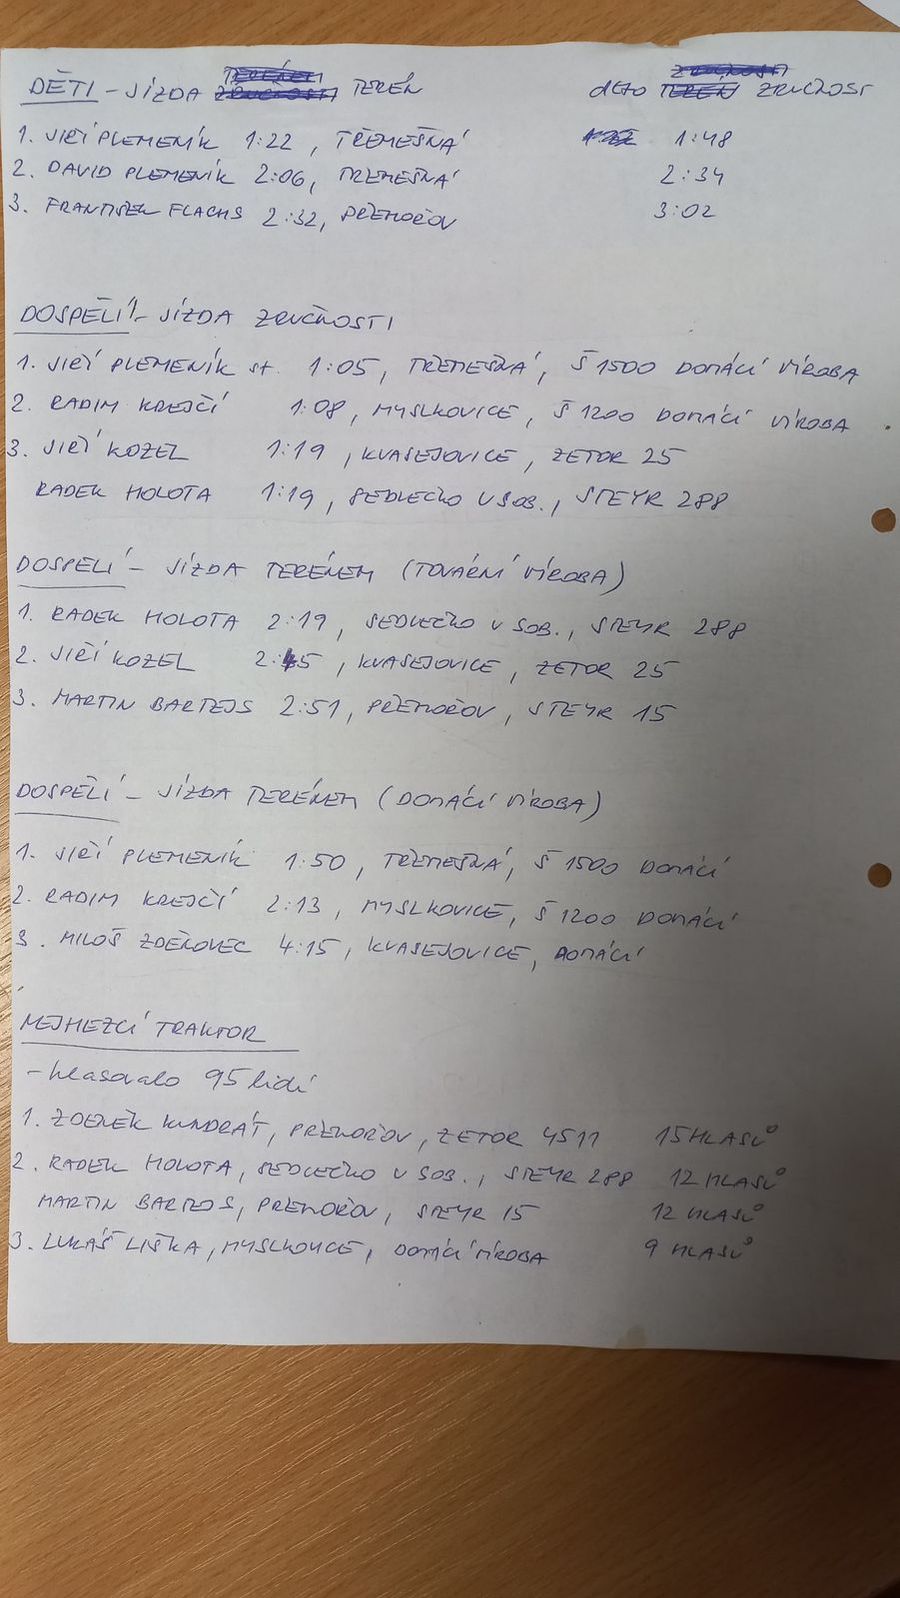 DĚTI - JÍZDA TERÉN
deto ZRUČNOST
1. JIŘÍ PLEMENÍK 1:22, TŘEMEŠNÁ 1:48
2. DAVID PLEMENÍK 2:06, TŘEMEŠNÁ 2:34
3. FRANTIŠEK FLACHS 2:32, PŘEHOŘOV 3:02
DOSPĚLÍ - JÍZDA ZRUČNOSTI
1. JIŘÍ PLEMENÍK st. 1:05, TŘEMEŠNÁ, Š 1500 DOMÁCÍ VÍROBA
2. RADIM KREJČÍ 1:08, MYSLKOVICE, Š 1200 DOMÁCÍ VÍROBA
3. JIŘÍ KOZEL 1:19, KVASEJOVICE, ZETOR 25
RADEK HOLOTA 1:19, SEDLEČKO U SOB., STEYR 288
DOSPĚLÍ - JÍZDA TERÉNEM (TOVÁRNÍ VÍROBA)
1. RADEK HOLOTA 2:19, SEDLEČKO U SOB., STEYR 288
2. JIŘÍ KOZEL 2:45, KVASEJOVICE, ZETOR 25
3. MARTIN BARTEJS 2:51, PŘEHOŘOV, STEYR 15
DOSPĚLÍ - JÍZDA TERÉNEM (DOMÁCÍ VÍROBA)
1. JIŘÍ PLEMENÍK 1:50, TŘEMEŠNÁ, Š 1500 DOMÁCÍ
2. RADIM KREJČÍ 2:13, MYSLKOVICE, Š 1200 DOMÁCÍ
3. MILOŠ ZDEŇOVEC 4:15, KVASEJOVICE, DOMÁCÍ
NEJHEZČÍ TRAKTOR
- hlasovalo 95 lidí
1. ZDENĚK KUNDRÁT, PŘEHOŘOV, ZETOR 4511 15 HLASŮ
2. RADEK HOLOTA, SEDLEČKO U SOB., STEYR 288 12 HLASŮ
MARTIN BARTEJS, PŘEHOŘOV, STEYR 15 12 HLASŮ
3. LUKÁŠ LIŠKA, MYSLKOVICE, DOMÁCÍ VÍROBA 9 HLASŮ